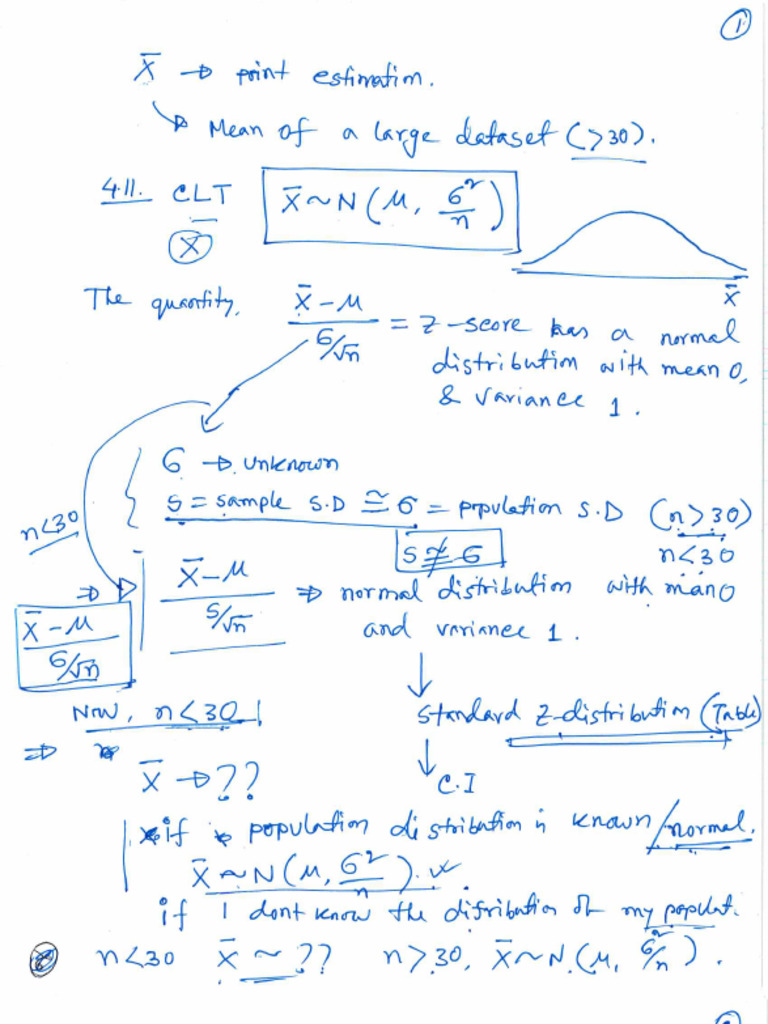 1
X̄ → point estimation.
↳ Mean of a large dataset (>30).
4.11. CLT X̄ ~ N(μ, σ²/n)
X̄
X̄
The quantity, (X̄ - μ)/(σ/√n) = z-score has a normal
distribution with mean 0,
& variance 1.
σ → unknown
s = sample S.D ≅ σ = population S.D (n>30)
n<30
s ≇ σ n<30
⇒ (X̄ - μ)/(s/√n) ⇒ normal distribution with mean 0
and variance 1.
(X̄ - μ)/(σ/√n)
Now, n<30!
↓
standard z-distribution (Table)
⇒
↓ C.I
X̄ → ??
if population distribution is known/normal.
X̄ ~ N(μ, σ²/n).
if I dont know the distribution of my populat.
n<30 X̄ ~ ?? n>30, X̄ ~ N.(μ, σ²/n).